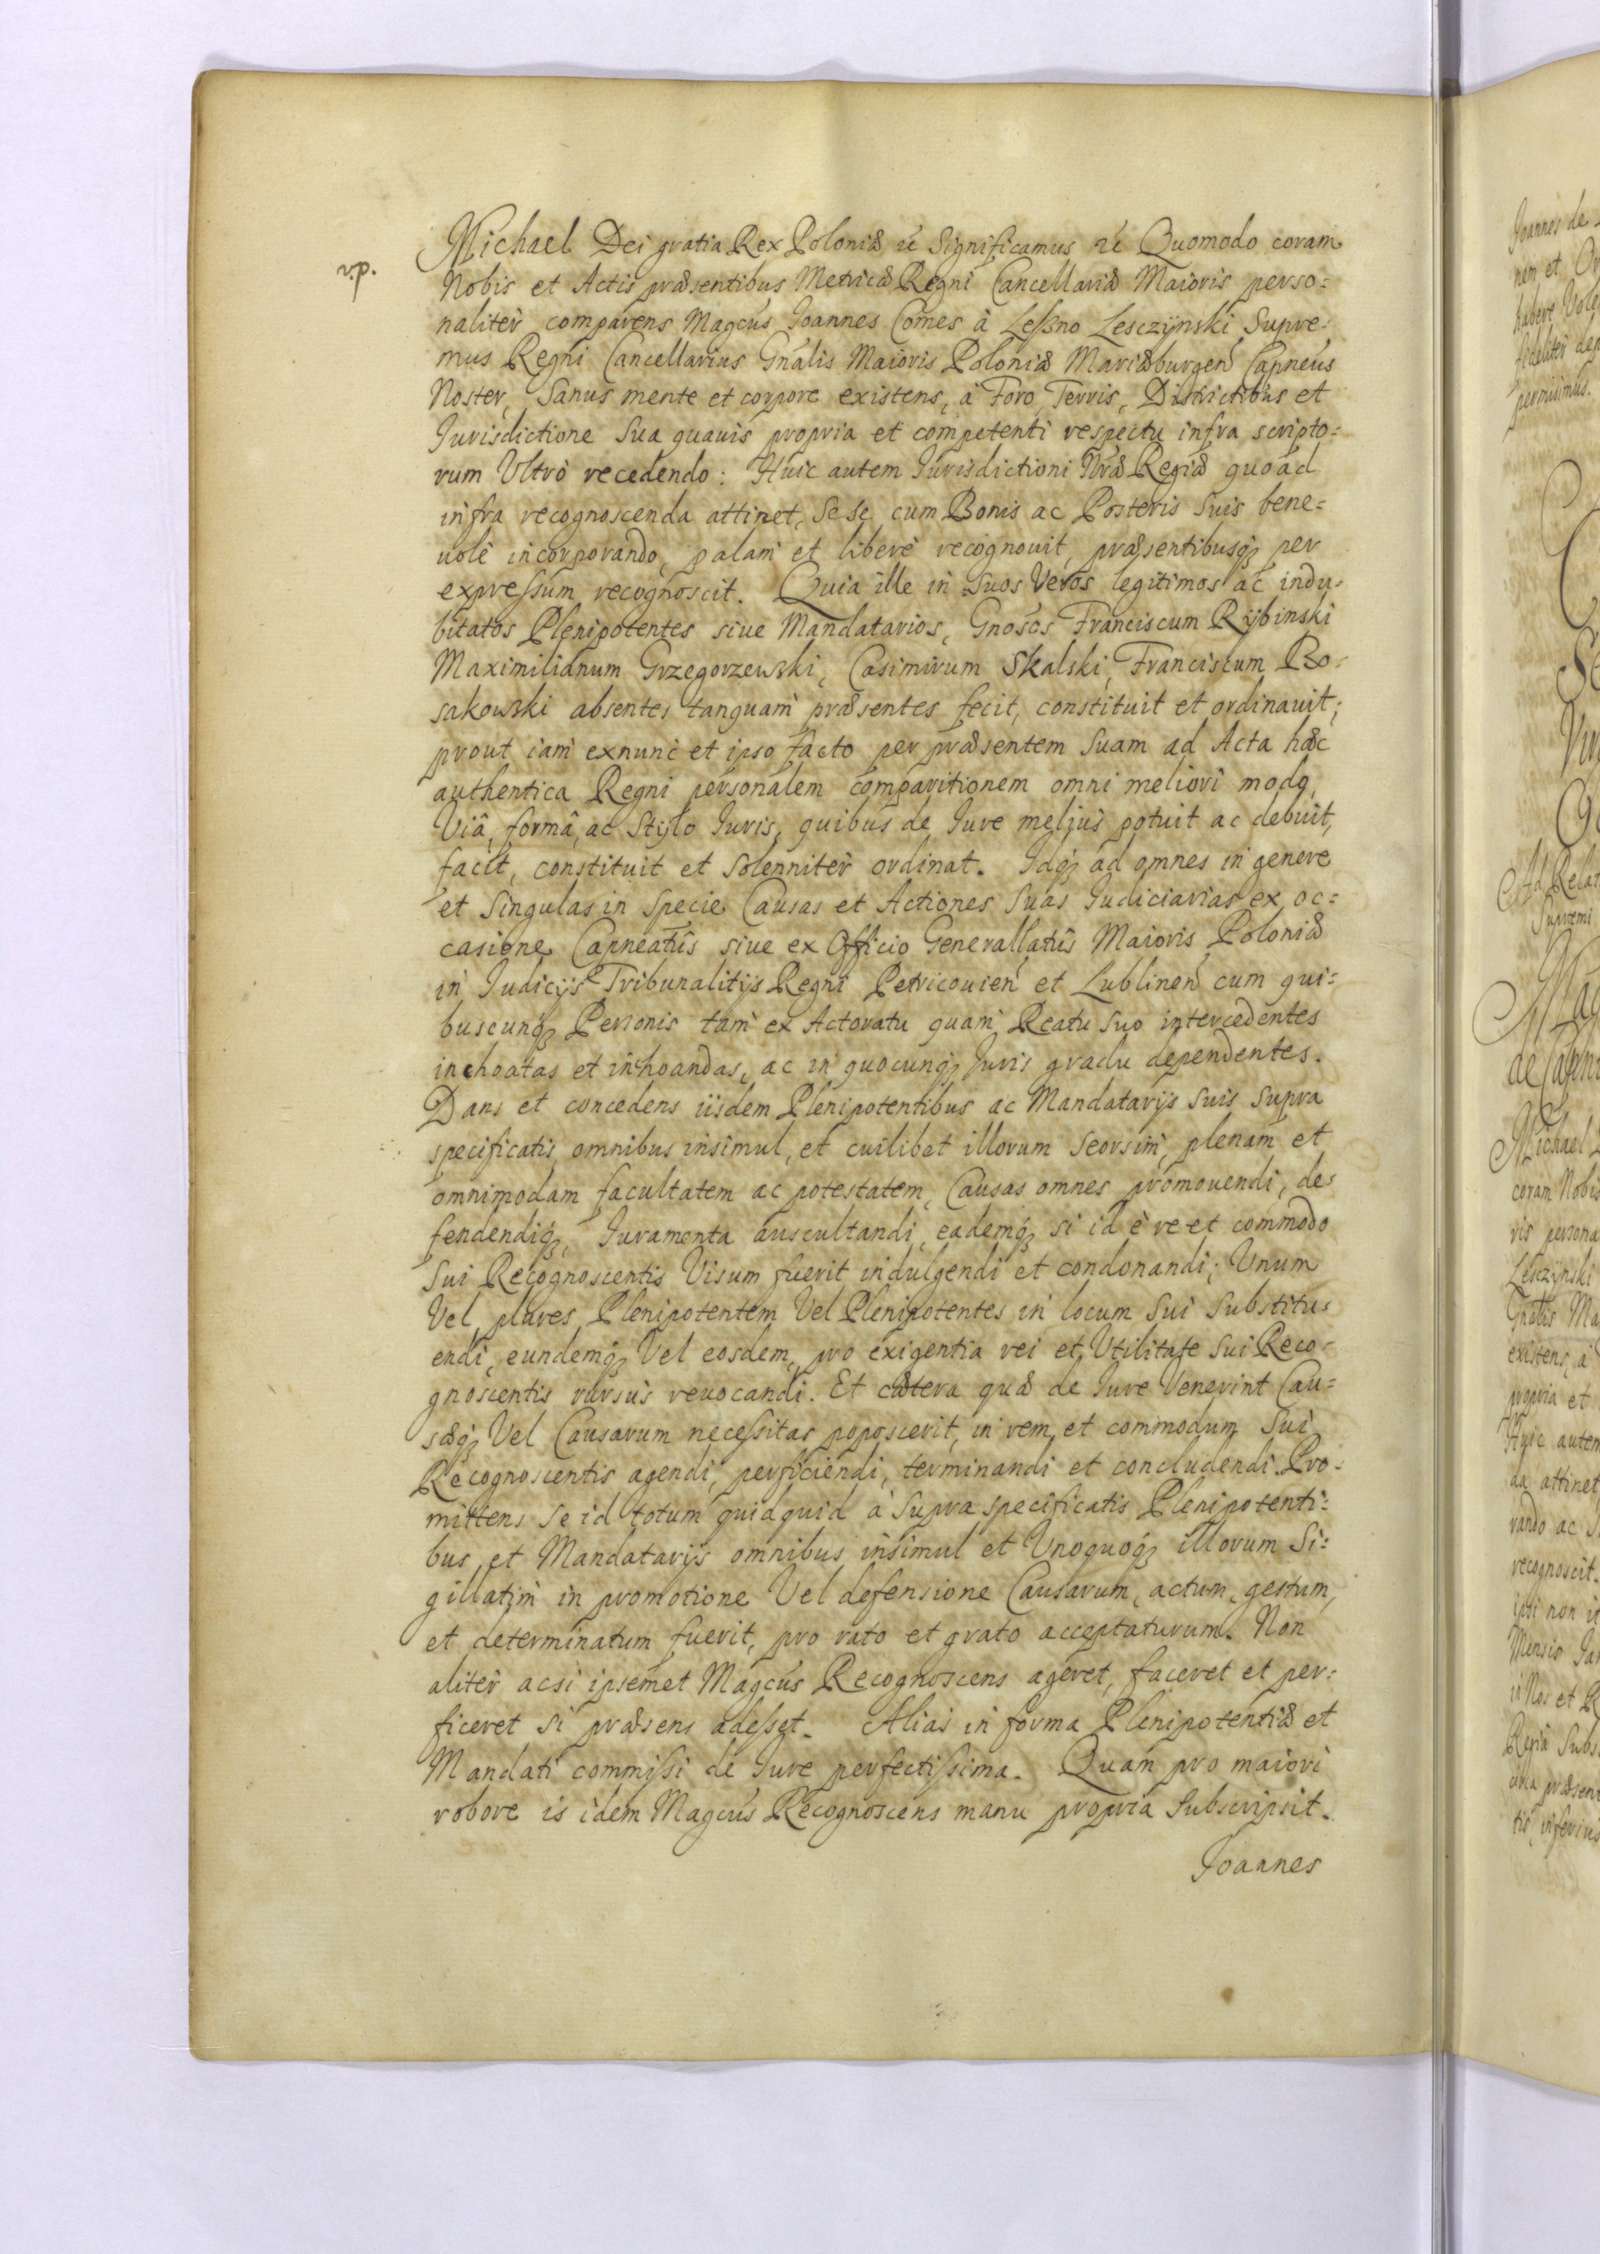 Michael Dei gratia Rex Poloniæ &c Significamus &c Quomodo coram
v.p.
Nobis et Actis præsentibus Metricæ Regni Cancellariæ Maioris perso=
naliter comparens Magcus Joannes Comes à Leszno Lesczÿnski, Supre=
mus Regni Cancellarius Gnalis Maioris Poloniæ Mariæburgen Capneus
Noster, Sanus mente et corpore existens, à Foro, Terris, Districtibus et
Jurisdictione Sua quauis propria et competenti respectu infra scripto=
rum Vltrò recedendo: Huic autem Jurisdictioni Nræ Regiæ quoad
infra recognoscenda attinet, Se se cum Bonis ac Posteris Suis bene=
uolè incorporando, palam et liberè recognouit, præsentibusq; per
expressum recognoscit. Quia ille in suos Veros legitimos ac indu=
bitatos Plenipotentes siue Mandatarios, Gnosos Franciscum Rÿbinski
Maximilianum Grzegorzewski, Casimirum Skalski, Franciscum Bo=
sakowski absentes tanquam præsentes fecit, constituit et ordinauit;
prout iam exnunc et ipso facto per præsentem Suam ad Acta hæc
authentica Regni personalem comparitionem omni meliori modo,
Viâ, formâ, ac Stÿlo Iuris, quibus de Iure melius potuit ac debuit,
facit, constituit et Solenniter ordinat. Idq; ad omnes in genere
et Singulas in Specie Causas et Actiones Suas Iudiciarias ex oc=
casione Capneatûs siue ex Officio Generallatûs Maioris Poloniæ
in Iudicÿs Tribunalitÿs Regni Petricouien et Lublinen cum qui=
buscunq; Personis tam ex Actoratu quam Reatu Suo intercedentes
inchoatas et inchoandas, ac in quocunq; Iuris gradu dependentes.
Dans et concedens iisdem Plenipotentibus ac Mandatarÿs Suis Supra
specificatis omnibus insimul, et cuilibet illorum Seorsim, plenam et
omnimodam facultatem ac potestatem, Causas omnes promouendi, de=
fendendiq;, Iuramenta auscultandi, eademq; si id è re et commodo
Sui Recognoscentis Visum fuerit indulgendi et condonandi; Vnum
Vel plures Plenipotentem Vel Plenipotentes in locum Sui Substitu=
endi, eundemq; Vel eosdem, pro exigentia rei et Vtilitate Sui Reco=
gnoscentis rursus reuocandi. Et cætera quæ de Iure Venerint Cau=
sæq; Vel Causarum necessitas poposcerit, in rem et commodum Sui
Recognoscentis agendi, perficiendi, terminandi et concludendi. Pro=
mittens Se id totum quidquid à Supra specificatis Plenipotenti=
bus et Mandatarÿs omnibus insimul et Vnoquoq; illorum Si=
gillatim in promotione Vel defensione Causarum, actum, gestum,
et determinatum fuerit, pro rato et grato acceptaturum. Non
aliter acsi ipsemet Magcus Recognoscens ageret, faceret et per=
ficeret Si præsens adesset. Alias in forma Plenipotentiæ et
Mandati commissi de Iure perfectissima. Quam pro maiori
robore is idem Magcus Recognoscens manu propria Subscripsit.
Joannes